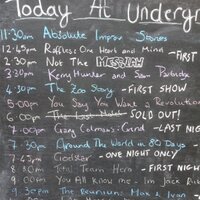 Today At Undergr
11:30am Absolute Improv Stories
12:45pm Raffles: One Heart and Mind -FIRST
2:30pm Not The MESSIAH
3:30pm Kerry Hunter and Sam Partridge
4:30pm The Zoo Story - FIRST SHOW
5:00pm You Say You Want a Revolution
6:00pm The Last SOLD OUT!
7:00pm Craig Colmans: Grand -LAST NIG
7:30pm Around The World in 80 Days -
7:45pm Godstar - ONE NIGHT ONLY
8:30pm Total Team Hero - FIRST NIGHT
9:00pm You All Know me - I'm Jack Ruby
9:30pm The Reunion: Max & Ivan